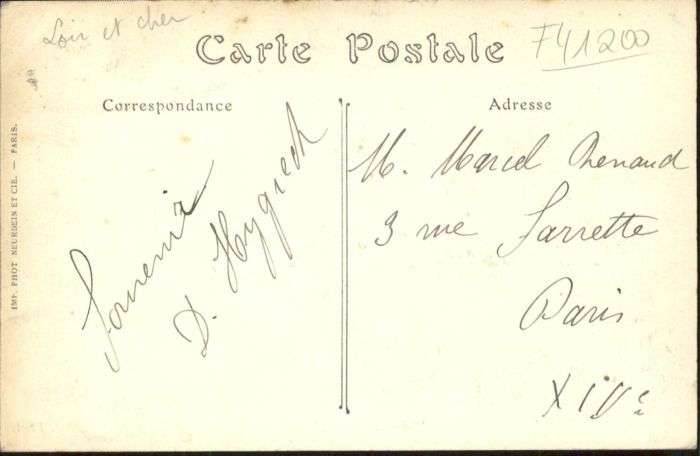 Loir et cher
Carte Postale
F41200
Correspondance
Adresse
IMP. PHOT NEURDEIN ET CIE. — PARIS.
Souvenir
D.
M. Marcel Renaud
3 rue Sarrette
Paris
XIVe